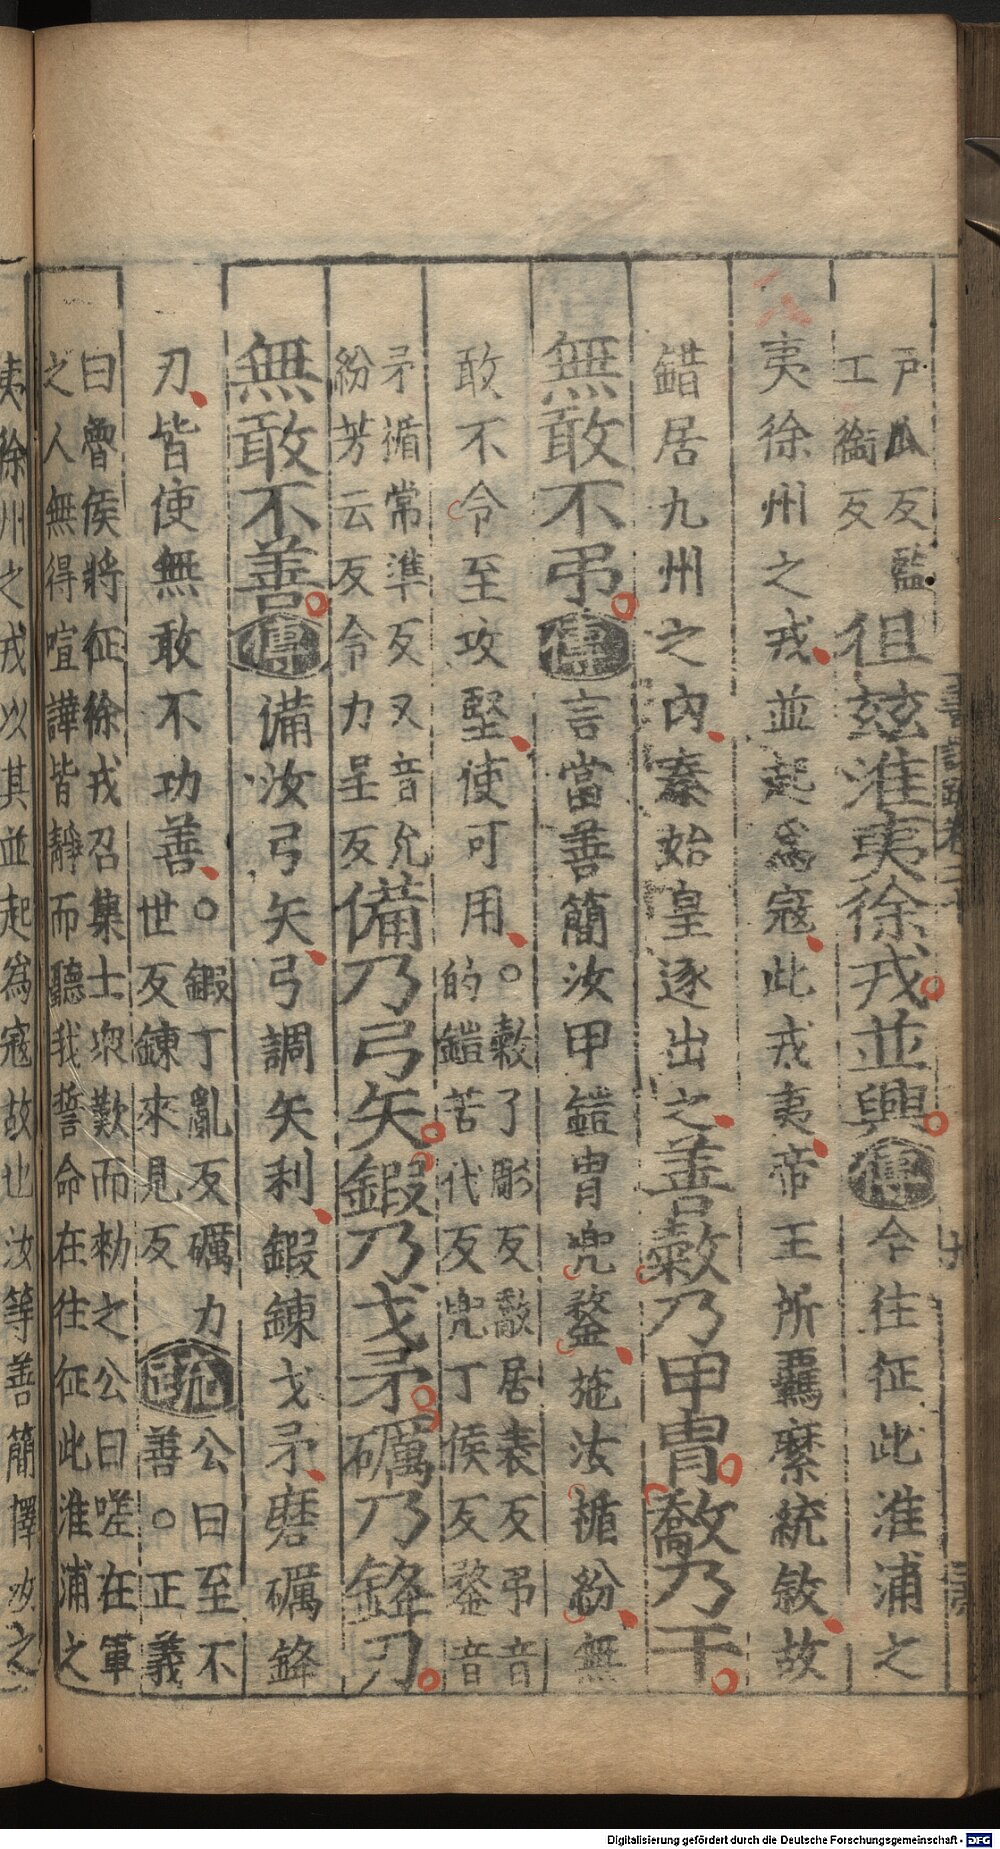 戶瓜反監
工銜反
徂兹淮夷徐戎並興傳今往征此淮浦之
夷徐州之戎並起爲寇此戎夷帝王所羈縻統敘故
錯居九州之內秦始皇逐出之善敹乃甲冑敿乃干
無敢不弔傳言當善簡汝甲鎧冑兜鍪施汝楯紛無
敢不令至攻堅使可用
○敹了彫反敿居表反弔音
的鎧苦代反兜丁侯反鍪音
矛楯常準反又音允
紛芳云反令力呈反
備乃弓矢鍜乃戈矛礪乃鋒刃
無敢不善傳備汝弓矢弓調矢利鍜鍊戈矛磨礪鋒
刃皆使無敢不功善
○鍜丁亂反礪力
世反鍊來見反
疏
公曰至不
善○正義
曰魯侯將征徐戎召集士衆歎而勑之公曰嗟在軍
之人無得喧譁皆靜而聽我誓命在往征此淮浦之
夷徐州之戎以其並起爲寇故也汝等善簡擇汝之
Digitalisierung gefördert durch die Deutsche Forschungsgemeinschaft - DFG